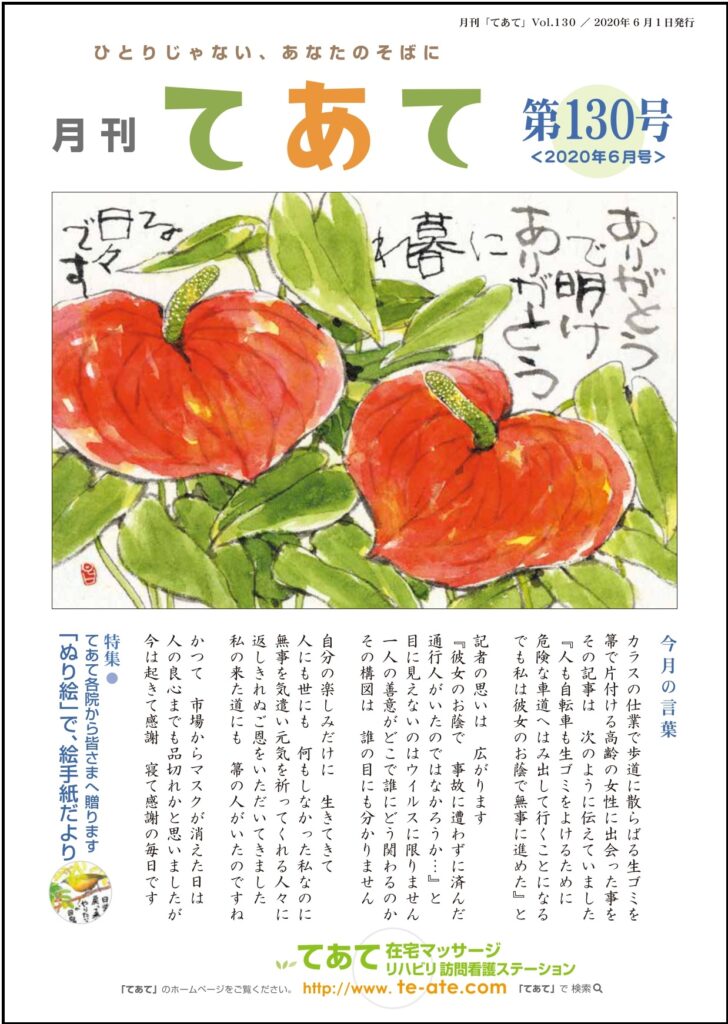 月刊「てあて」Vol.130 ／ 2020年６月１日発行
ひとりじゃない、あなたのそばに
月刊 てあて
第130号
＜2020年６月号＞
ありがとう
で明け
ありがとう
に
暮
れ
てな
日々
です
今月の言葉
カラスの仕業で歩道に散らばる生ゴミを
箒で片付ける高齢の女性に出会った事を
その記事は　次のように伝えていました
『人も自転車も生ゴミをよけるために
危険な車道へはみ出して行くことになる
でも私は彼女のお蔭で無事に進めた』と
記者の思いは　広がります
『彼女のお蔭で　事故に遭わずに済んだ
通行人がいたのではなかろうか…』と
目に見えないのはウイルスに限りません
一人の善意がどこで誰にどう関わるのか
その構図は　誰の目にも分かりません
自分の楽しみだけに　生きてきて
人にも世にも　何もしなかった私なのに
無事を気遣い元気を祈ってくれる人々に
返しきれぬご恩をいただいてきました
私の来た道にも　箒の人がいたのですね
かつて　市場からマスクが消えた日は
人の良心までも品切れかと思いましたが
今は起きて感謝　寝て感謝の毎日です
特集●
てあて各院から皆さまへ贈ります
「ぬり絵」で、絵手紙だより
てあて 在宅マッサージ
リハビリ 訪問看護ステーション
「てあて」のホームページをご覧ください。 http://www.te-ate.com 「てあて」で 検索